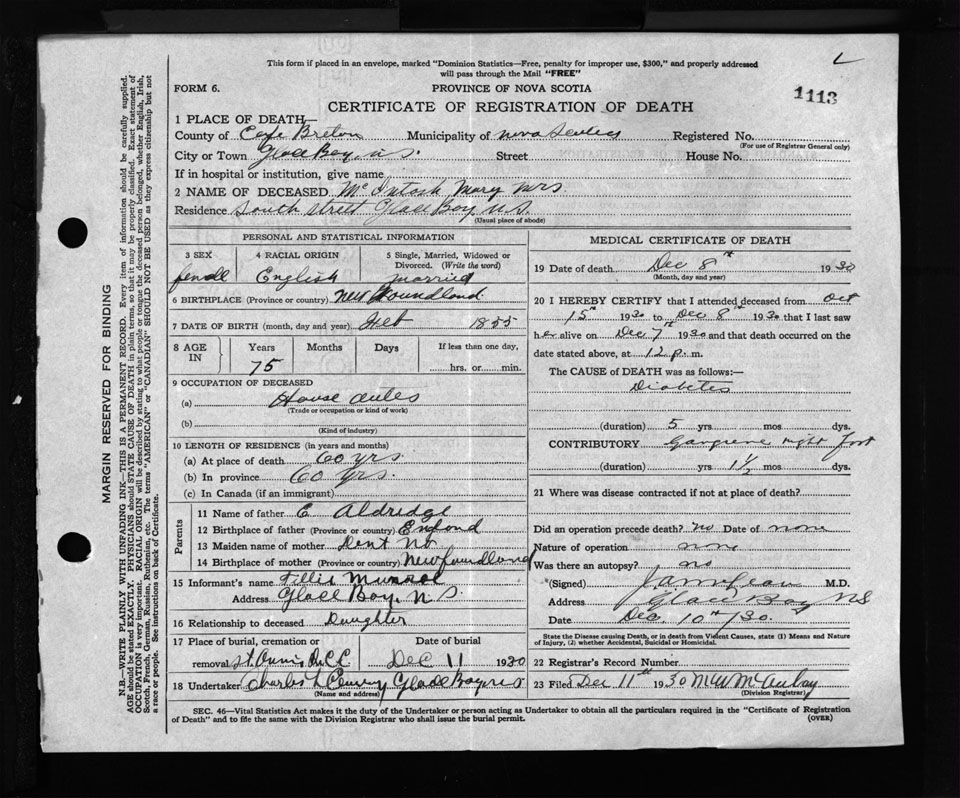 This form if placed in an envelope, marked "Dominion Statistics—Free, penalty for improper use, $300," and properly addressed
will pass through the Mail "FREE"
FORM 6.
PROVINCE OF NOVA SCOTIA
1113
CERTIFICATE OF REGISTRATION OF DEATH
1 PLACE OF DEATH—
County of Cape Breton Municipality of Nova Scotia Registered No.
(For use of Registrar General only)
City or Town Glace Bay, N S. Street House No.
If in hospital or institution, give name
2 NAME OF DECEASED McIntosh Mary Mrs.
Residence South Street Glace Bay. N.S.
(Usual place of abode)
PERSONAL AND STATISTICAL INFORMATION
3 SEX 4 RACIAL ORIGIN 5 Single, Married, Widowed or
Divorced. (Write the word)
English married
6 BIRTHPLACE (Province or country) New Foundland.
7 DATE OF BIRTH (month, day and year) Feb 1855
8 AGE IN Years Months Days If less than one day,
75 hrs. or min.
9 OCCUPATION OF DECEASED
(a) House
(Trade or occupation or kind of work)
(b)
(Kind of industry)
10 LENGTH OF RESIDENCE (in years and months)
(a) At place of death 60 yrs
(b) In province 60 yrs.
(c) In Canada (if an immigrant)
Parents
11 Name of father E Aldredge
12 Birthplace of father (Province or country) England
13 Maiden name of mother Dont No
14 Birthplace of mother (Province or country) Newfoundland
15 Informant's name Munroe
Address Glace Bay, N S.
16 Relationship to deceased Daughter
17 Place of burial, cremation or Date of burial
removal St. Anns Dec 11 1930
18 Undertaker Charles Glace Bay
(Name and address)
MEDICAL CERTIFICATE OF DEATH
19 Date of death Dec 8th 1930
(Month, day and year)
20 I HEREBY CERTIFY that I attended deceased from Oct
15th 1930 to Dec 8th 1930 that I last saw
her alive on Dec 7th 1930 and that death occurred on the
date stated above, at 12 p. m.
The CAUSE of DEATH was as follows:—
Diabetes
(duration) 5 yrs mos dys.
CONTRIBUTORY Gangrene right foot
(duration) yrs 1½ mos. dys.
21 Where was disease contracted if not at place of death?
Did an operation precede death? no Date of none
Nature of operation none
Was there an autopsy? no
(Signed) M.D.
Address Glace Bay NS
Date Dec 10th /30.
State the Disease causing Death, or in death from Violent Causes, state (1) Means and Nature
of Injury, (2) whether Accidental, Suicidal or Homicidal.
22 Registrar's Record Number
23 Filed Dec 11th 1930
(Division Registrar)
SEC. 46—Vital Statistics Act makes it the duty of the Undertaker or person acting as Undertaker to obtain all the particulars required in the "Certificate of Registration
of Death" and to file the same with the Division Registrar who shall issue the burial permit.
(OVER)
MARGIN RESERVED FOR BINDING
N.B.—WRITE PLAINLY WITH UNFADING INK—THIS IS A PERMANENT RECORD. Every item of information should be carefully supplied.
AGE should be stated EXACTLY. PHYSICIANS should STATE CAUSE OF DEATH in plain terms, so that it may be properly classified. Exact statement of
OCCUPATION is very important. RACIAL ORIGIN will be described by stating to what people or tongue the deceased person belonged, whether English, Irish,
Scotch, French, German, Russian, Ruthenian, etc. The terms "AMERICAN" or "CANADIAN" SHOULD NOT BE USED as they express citizenship but not
a race or people. See instructions on back of Certificate.